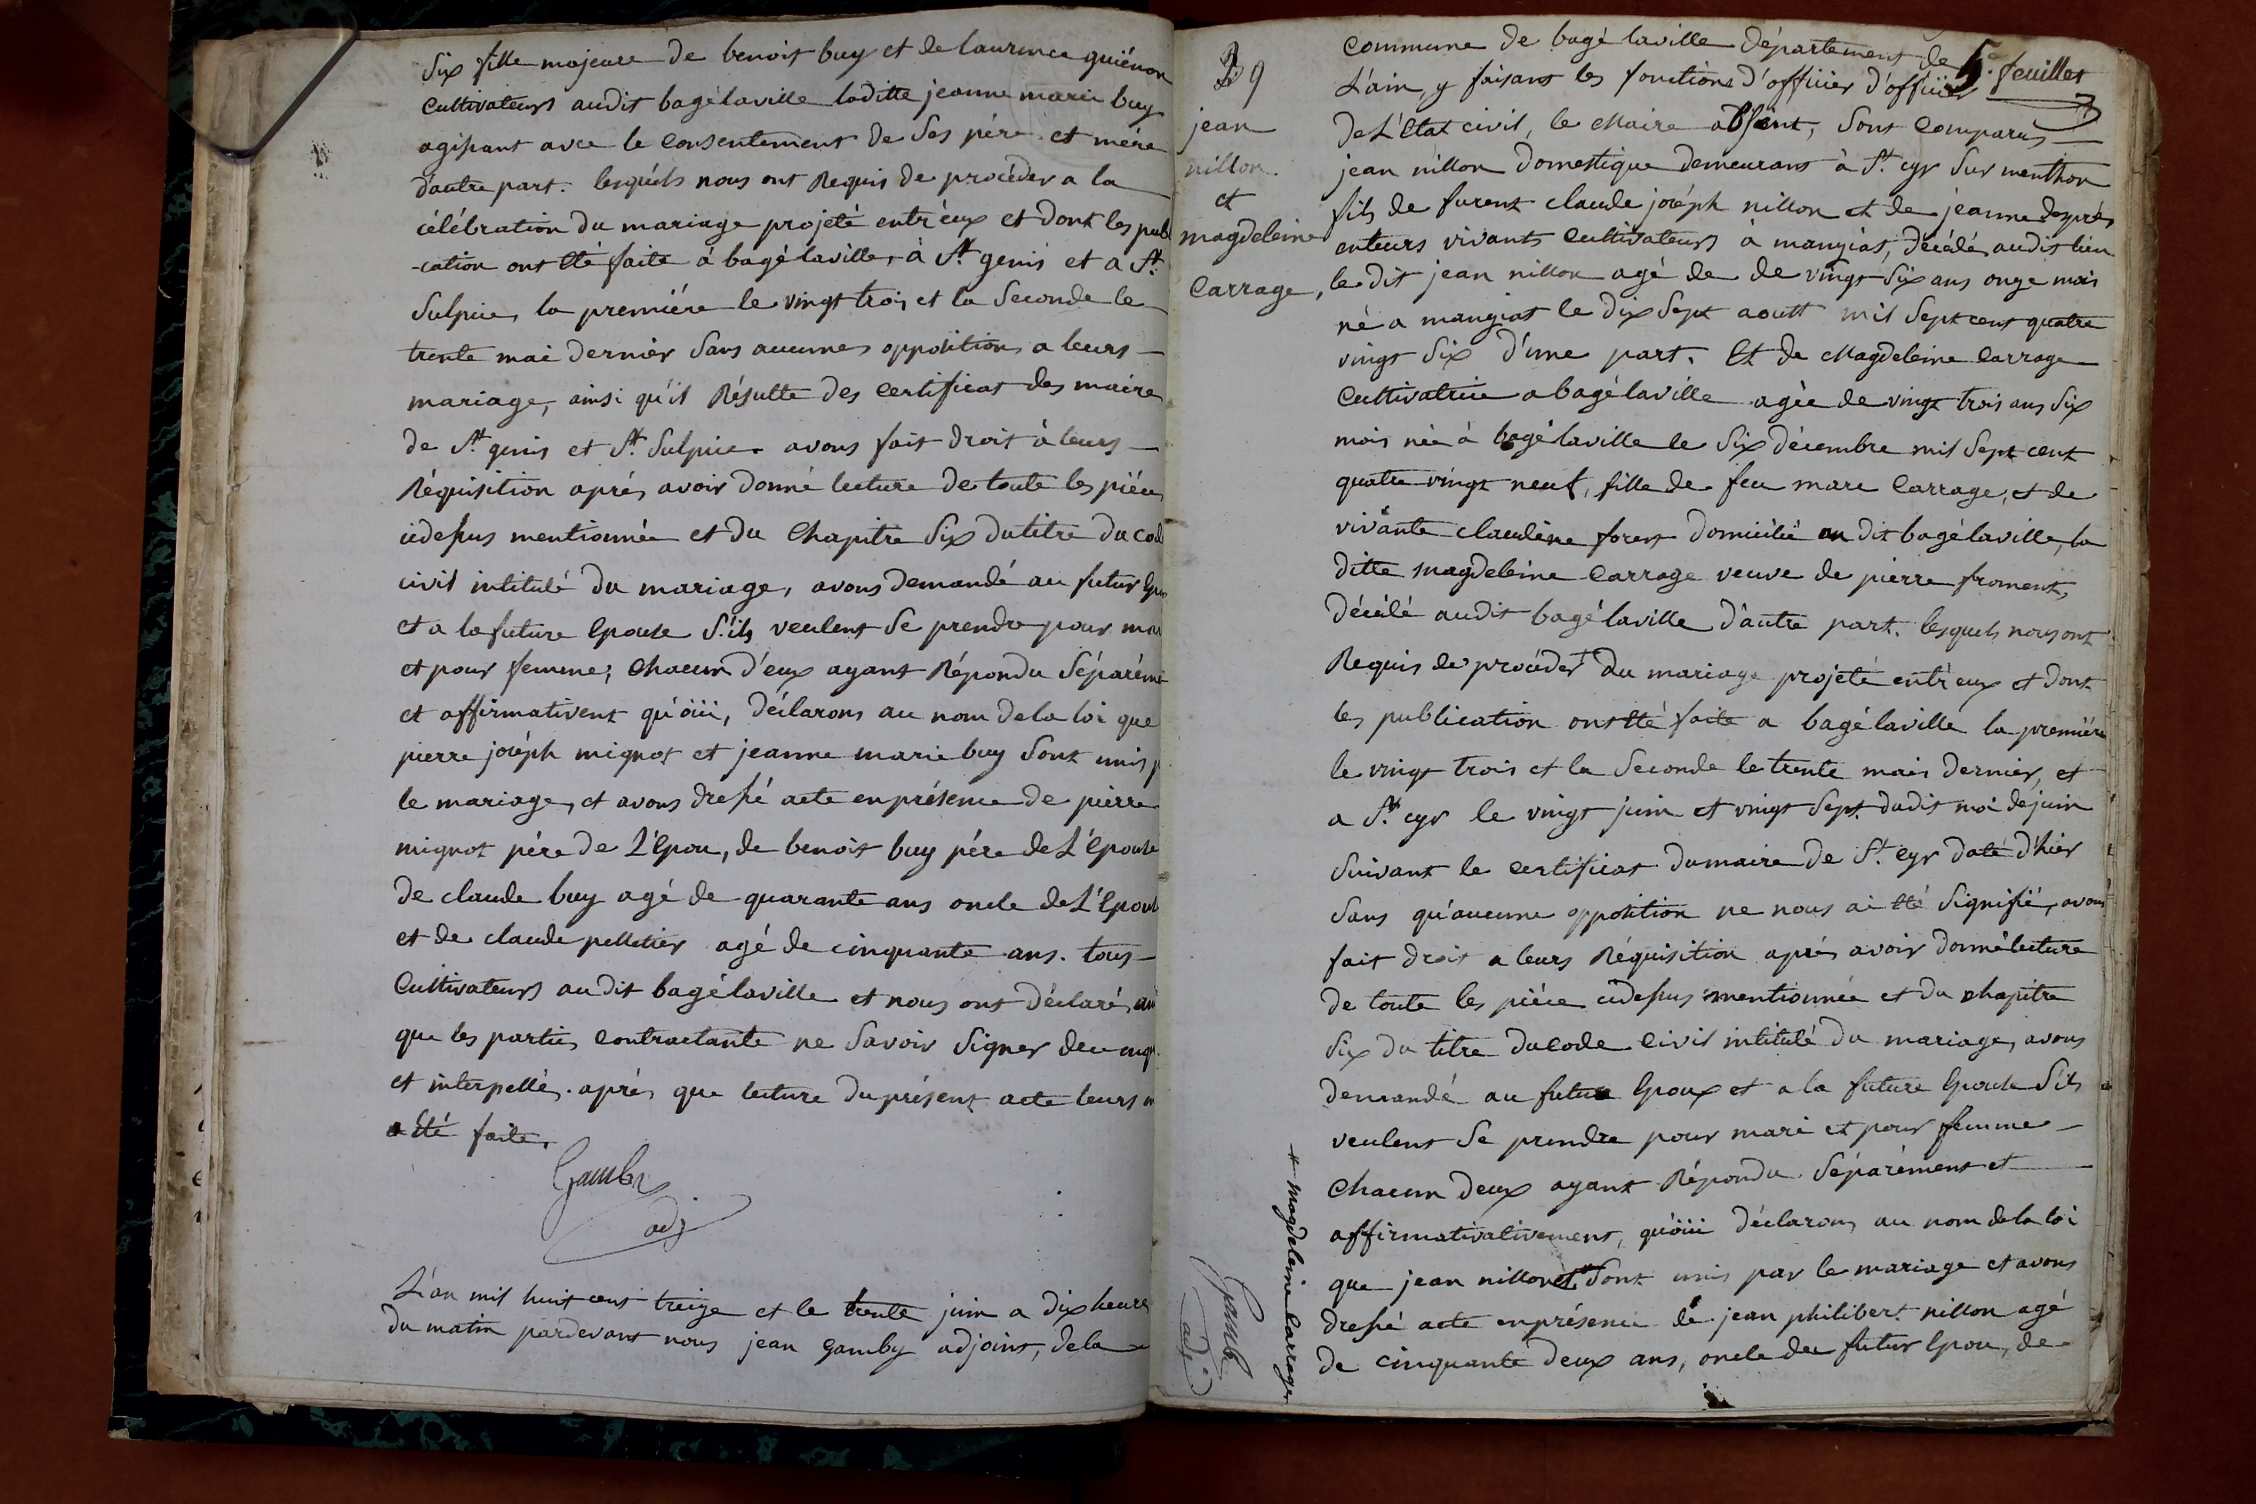 Six fille majeure de benoit buy et de laurence quiénon
Cultivateurs audit bagélaville laditte jeanne marie buy
agissant avec le consentement de Ses pére et mére
d'autre part. lesquéls nous ont Requis de procéder a la
célébration du mariage projeté entr'eux et dont les pub
-cation ont été faite á bagélaville, à St. genis et a St.
Sulpice, la premiére le vingt trois et la Seconde le
trente mai dernier Sans aucunes opposition a leurs
mariage, ainsi qu'il Résulte des certificat des maire
de St. genis et St. Sulpice. avons fait droit à leurs
Réquisition aprés avoir donné lecture de toute les piéces
cidessus mentionnée et du Chapitre Six du titre du cod
civil intitulé du mariage, avons demandé au futur Epou
et a la future Epouse S'ils veulent Se prendre pour mar
et pour femme; chacun d'eux ayant Répondu Séparéme
et affirmativent qu'oüi, déclarons au nom de la loi que
pierre joséph mignot et jeanne marie buy Sont unis p
le mariage, et avons dressé acte en présence de pierre
mignot pére de L'épou, de benoit buy pére de L'épouse
de claude buy agé de quarante ans oncle de L'Epous
et de claude pelletier agé de cinquante ans. tous
Cultivateurs audit bagélaville et nous ont déclaré, ain
que les partie, contractante ne Savoir Signer de ce enq.
et interpellé. aprés que lecture du présent acte leurs
a été faite,
Gamby
adj
L'an mil huit cent treize et le trente juin a dix heures
du matin pardevant nous jean gamby adjoint, de la
39
jean
nillon.
et
magdeleine
Carrage,
5.e feuillet
Commune de bagé laville département de
L'ain, y faisant les fonctions d'officier d'officier
de L'état civil, le Maire absent, Sont Comparus
jean nillon domestique demeurans à St. cyr Sur menthon
fils de furent claude joséph nillon et de jeanne desprès
enleurs vivants Cultivateurs à mangiat, décédé audit lieu
le dit jean nillon agé de de vingt Six ans onze mois
né a mangiat le dix Sept aoutt mil Sept cent quatre
vingt Six d'une part. Et de Magdeleine Carrage
Cultivatrice a bagélaville agée de vingt trois ans Six
mois née à bagélaville le Six décembre mil Sept cent
quatre vingt neuf, fille de feu marc Carrage, et de
vivante claudine forest domicilié au dit bagélaville, la
ditte magdeleine Carrage veuve de pierre froment,
décédé audit bagélaville d'autre part. lesquels nous ont
Requis de procéder du mariage projeté entr'eux et dont
les publication ont été faite a bagélaville la premiére
le vingt trois et la Seconde le trente mais dernier, et
a St. cyr le vingt juin et vingt Sept dudit moi de juin
Suivant le certificat du maire de St. cyr daté d'hier
Sans qu'aucune opposition ne nous ai été Signifié, avons
fait droit a leurs Réquisition aprés avoir donné lecture
de toute les piéce cidessus mentionnée et du chapitre
Six du titre du code civil intitulé du mariage, avons
demandé au future Epoux et a la future Epouse S'ils
veulent Se prendre pour mari et pour femme
Chacun deux ayant Répondu Séparément et
affirmativativement, qu'oüi déclarons au nom de la loi
que jean nillon et # Sont unis par le mariage et avons
dressé acte en présence de jean philibert nillon agé
de cinquante deux ans, oncle du futur Epou, de
# magdeleine Carrage
Gamby
adj